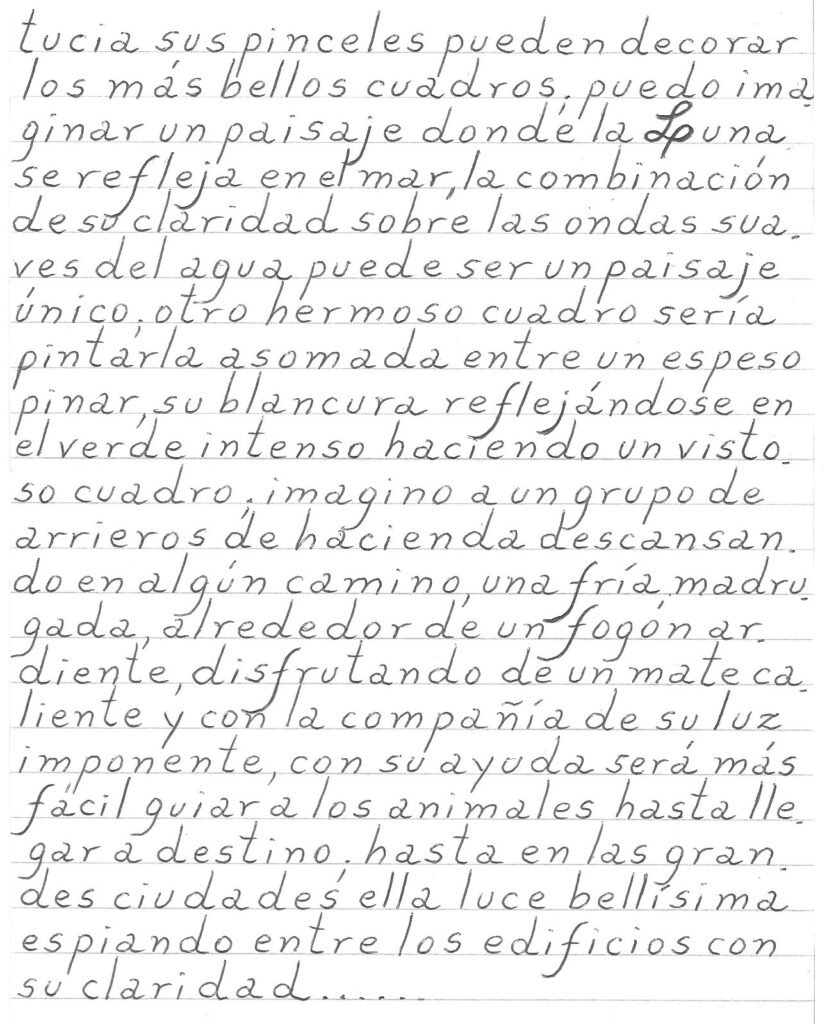 tucia sus pinceles pueden decorar
los más bellos cuadros; puedo ima-
ginar un paisaje donde la Luna
se refleja en el mar, la combinación
de su claridad sobre las ondas sua-
ves del agua puede ser un paisaje
único; otro hermoso cuadro sería
pintarla asomada entre un espeso
pinar, su blancura reflejándose en
el verde intenso haciendo un visto-
so cuadro; imagino a un grupo de
arrieros de hacienda descansan-
do en algún camino, una fría madru-
gada, alrededor de un fogón ar-
diente, disfrutando de un mate ca-
liente y con la compañía de su luz
imponente, con su ayuda será más
fácil guiar a los animales hasta lle-
gar a destino; hasta en las gran-
des ciudades ella luce bellísima
espiando entre los edificios con
su claridad.......